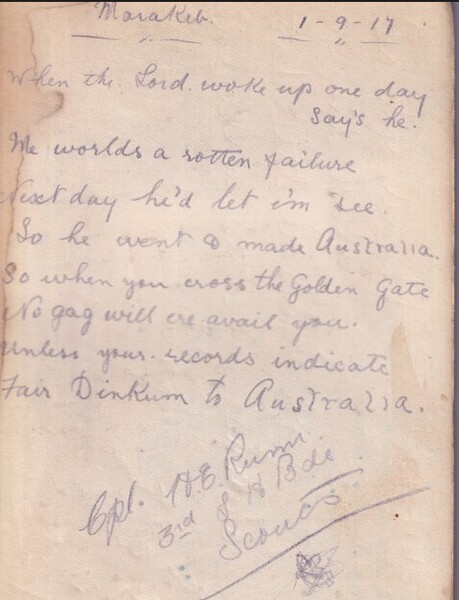 Marakeb. 1-9-17
When the Lord. woke up one day
Say's he.
Me worlds a rotten failure
Next day he'd let i'm see.
So he went & made Australia.
So when you cross the Golden Gate
No gag will ere avail you.
Unless your. records indicate
Fair Dinkum to Australia.
Cpl. H.E.
3rd L H Bde
Scouts